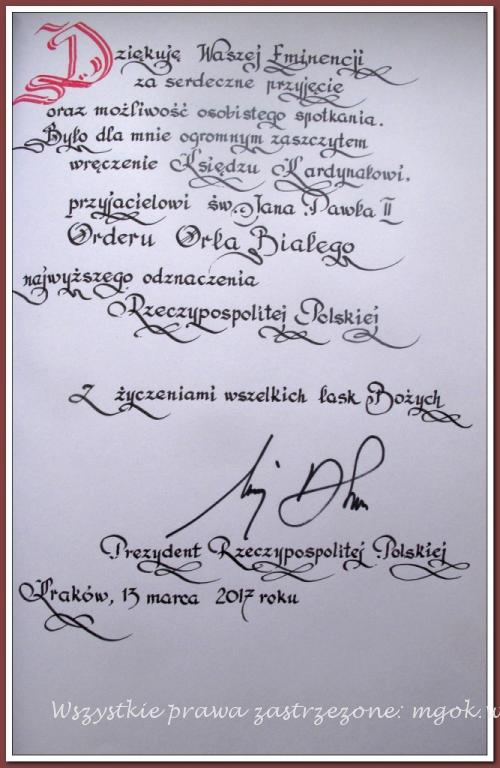 Dziękuję Waszej Eminencji
za serdeczne przyjęcie
oraz możliwość osobistego spotkania.
Było dla mnie ogromnym zaszczytem
wręczenie Księdzu Kardynałowi,
przyjacielowi św. Jana Pawła II
Orderu Orła Białego
najwyższego odznaczenia
Rzeczypospolitej Polskiej
Z życzeniami wszelkich łask Bożych
Prezydent Rzeczypospolitej Polskiej
Kraków, 13 marca 2017 roku
Wszystkie prawa zastrzezone: mgok.w